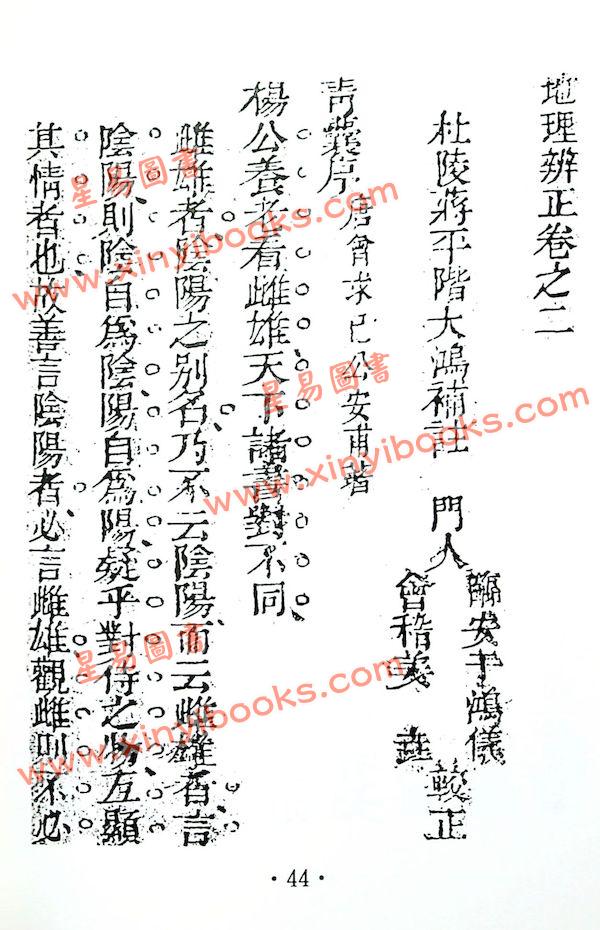 地理辨正卷之二
杜陵蔣平階大鴻補註 門人
臨安于鴻儀
會稽姜 垚
較正
青囊序 唐曾求己公安甫
楊公養老看雌雄天下諸書對不同
雌雄者陰陽之別名乃不云陰陽而云雌雄者言
陰陽則陰自爲陰陽自爲陽疑乎對待之物互顯
其情者也故善言陰陽者必言雌雄觀雌則不必
·44·
星易圖書
www.xinyibooks.com
星易圖書
www.xinyibooks.com
星易圖書
www.xinyibooks.com